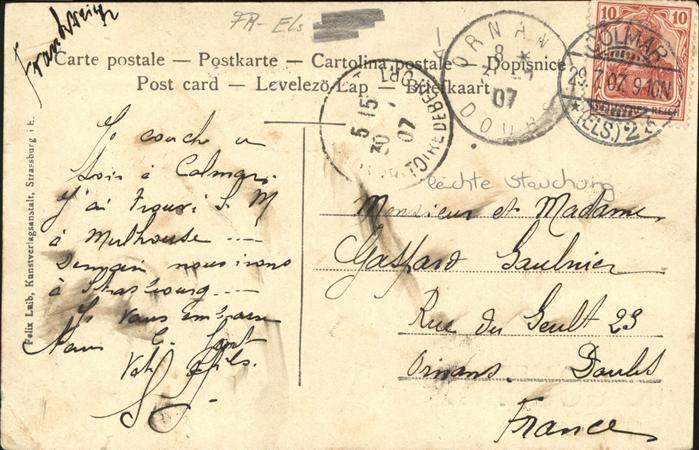 Frankreich
FR- Els
Carte postale — Postkarte — Cartolina postale — Dopisnice
Post card — Levelező Lap — Briefkaart
10 10
DEUTSCHES REICH
COLMAR
29.7.07. 9-10N
* (ELS.) 2
ORNANS
8
07
DOUBS
5 15
30
07
Je couche ce
soir à Colmar.
J'ai trouvé M
à Mulhouse ....
Demain nous irons
à Strasbourg ....
Je vous embrasse
Votre fils.
leichte Stauchung
Monsieur et Madame
Gaspard Saulnier
Rue du Seult 23
Ornans. Doubs
France
Felix Luib, Kunstverlagsanstalt, Strassburg i. E.